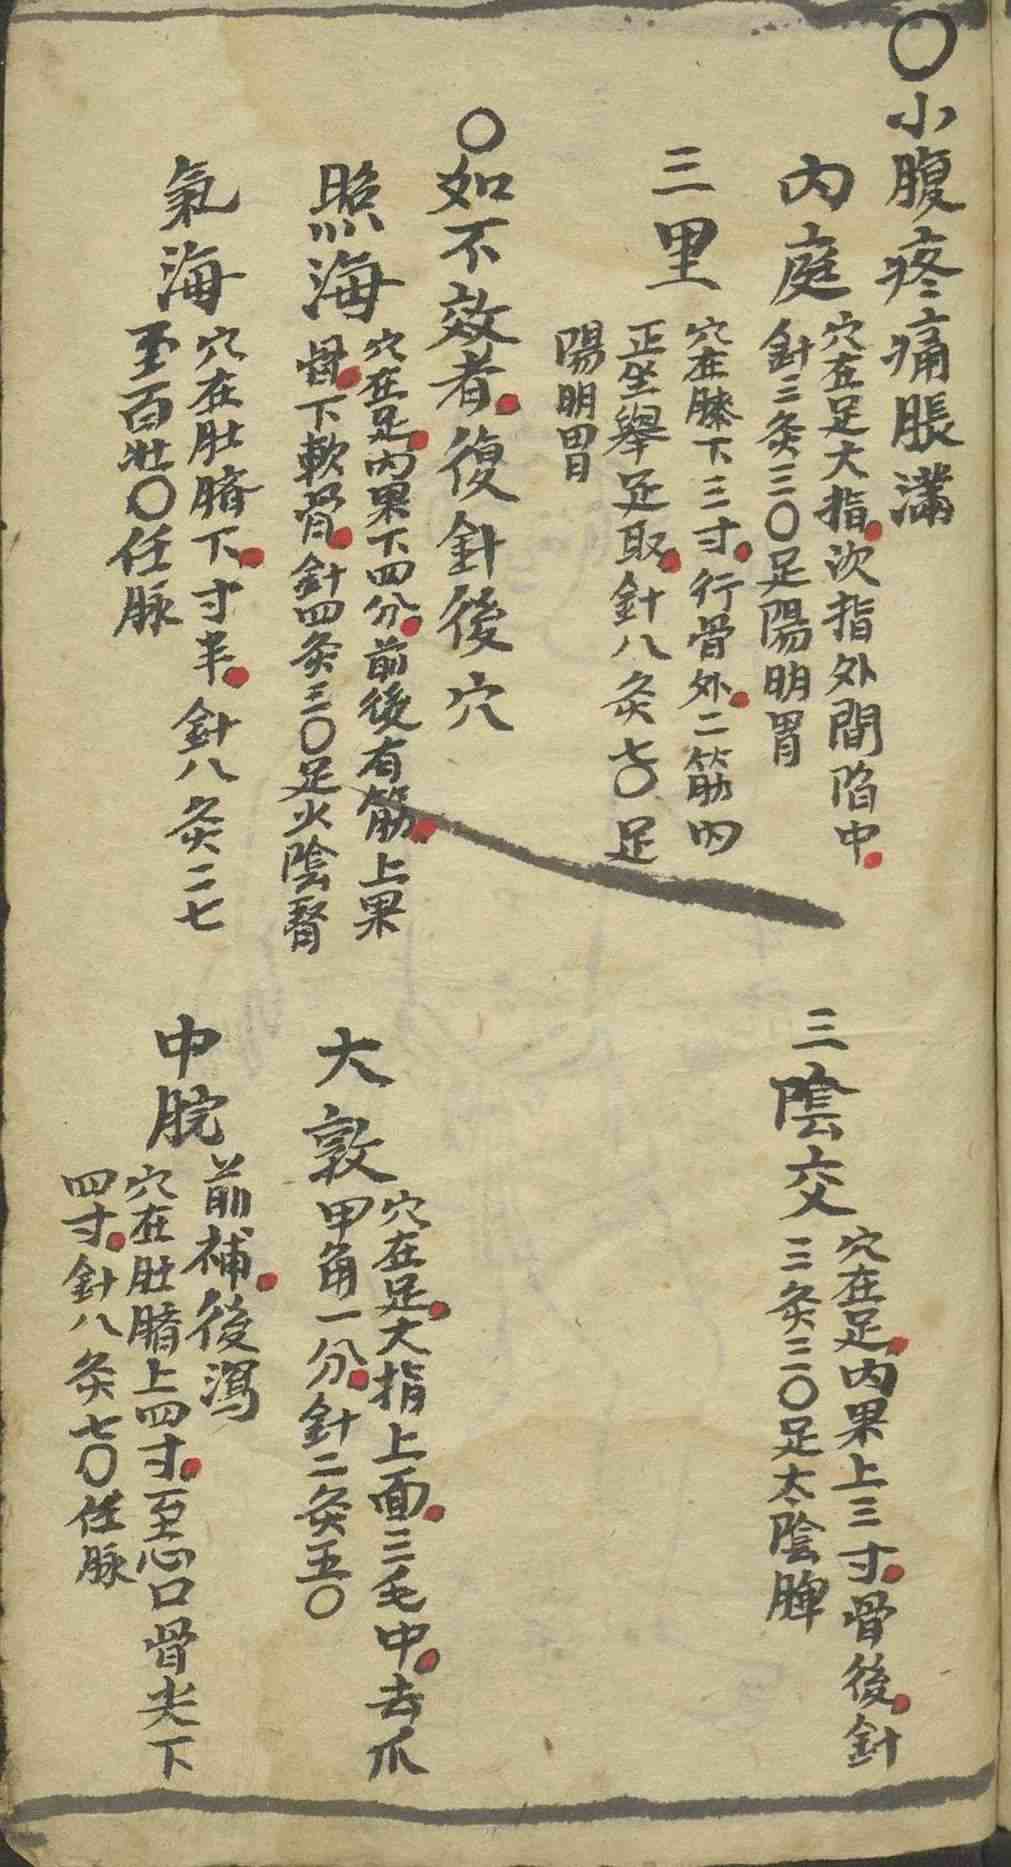 〇小腹疼痛脹滿
內庭
穴在足大指次指外間陷中
針三灸三〇足陽明胃
三陰交
穴在足內果上三寸骨後針
三灸三〇足太陰脾
三里
穴在膝下三寸行骨外二筋內
正坐舉足取針八灸七〇足
陽明胃
〇如不效者復針後穴
照海
穴在足內果下四分前後有筋上果
骨下軟骨針四灸三〇足火陰腎
大敦
穴在足大指上面三毛中去爪
甲角一分針二灸五〇
氣海
穴在肚臍下寸半針八灸二七
至百壯〇任脉
中脘
前補後瀉
穴在肚臍上四寸至心口骨尖下
四寸針八灸七〇任脉